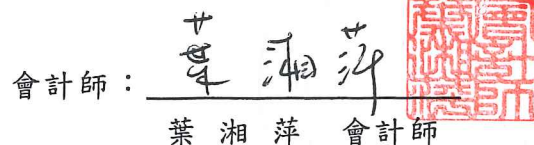 會計師：葉湘萍
葉湘萍 會計師